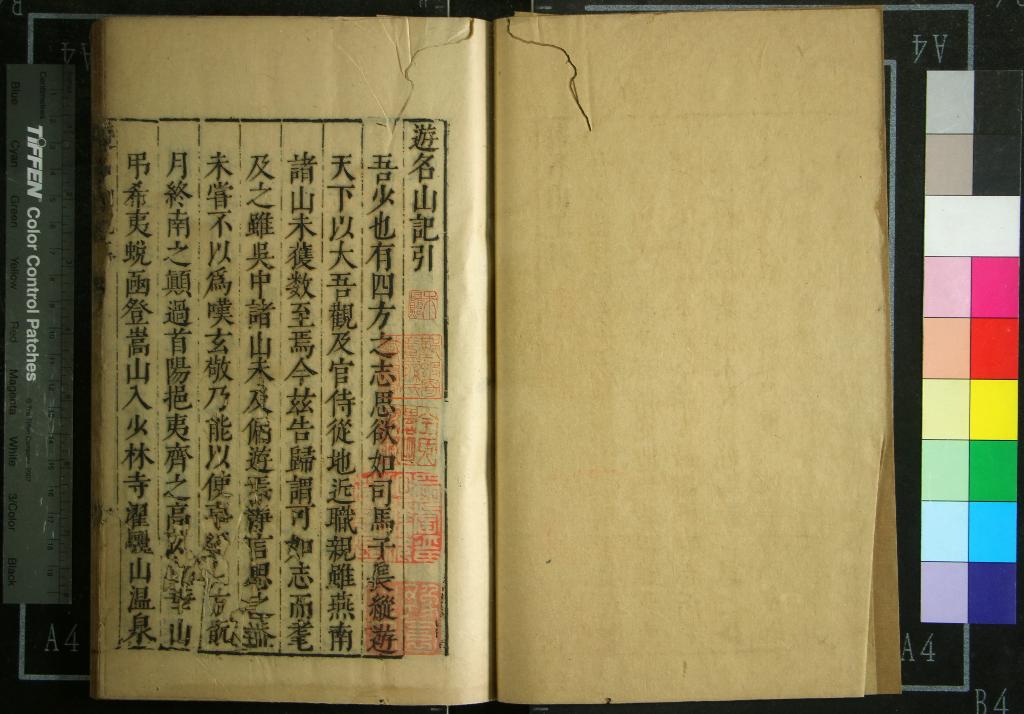 遊名山記引
吾少也有四方之志思欲如司馬子長縱遊
天下以大吾觀及官侍從地近職親雖燕南
諸山未獲数至焉今兹告歸謂可如志而耄
及之雖吳中諸山未及俻遊焉静言思之
未嘗不以爲嘆玄敬乃能以使
月終南之顛過首陽挹夷齊之高 山
弔希夷蛻函登嵩山入少林寺濯驪山温泉
TIFFEN Color Control Patches
Centimetres
Blue
Cyan
Green
Yellow
Red
Magenta
White
3/Color
Black
A4
A4
A4
A4
B4